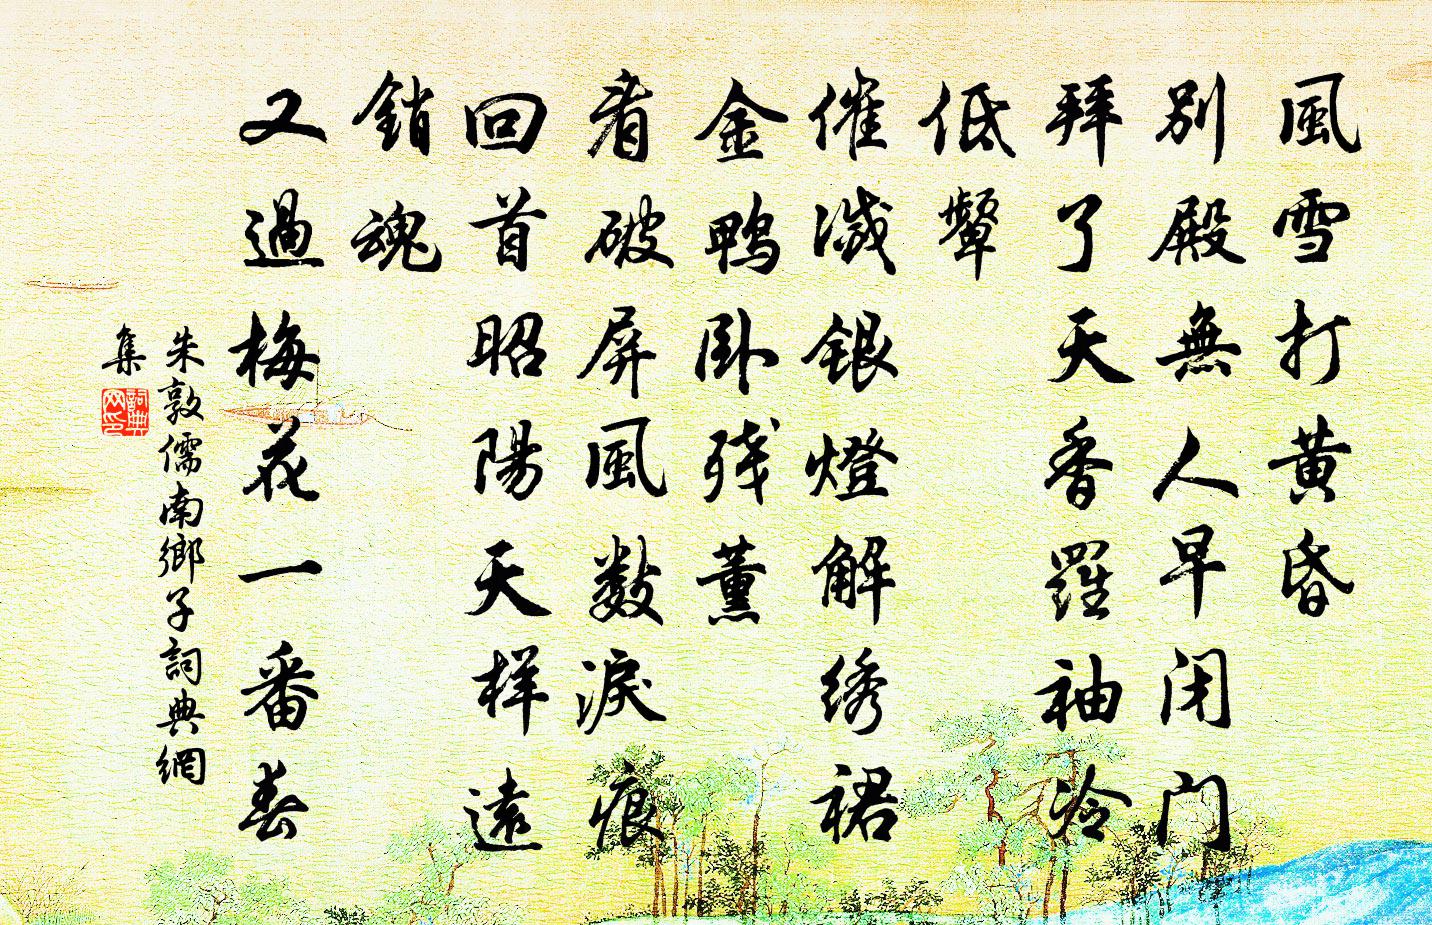 風雪打黄昏
別殿無人早闭门
拜了天香羅袖冷
低顰
催滅銀燈解绣裙
金鴨卧残薰
看破屏風数淚痕
回首昭陽天样遠
銷魂
又過梅花一番春
朱敦儒南鄉子詞典網
集
詞典
网印